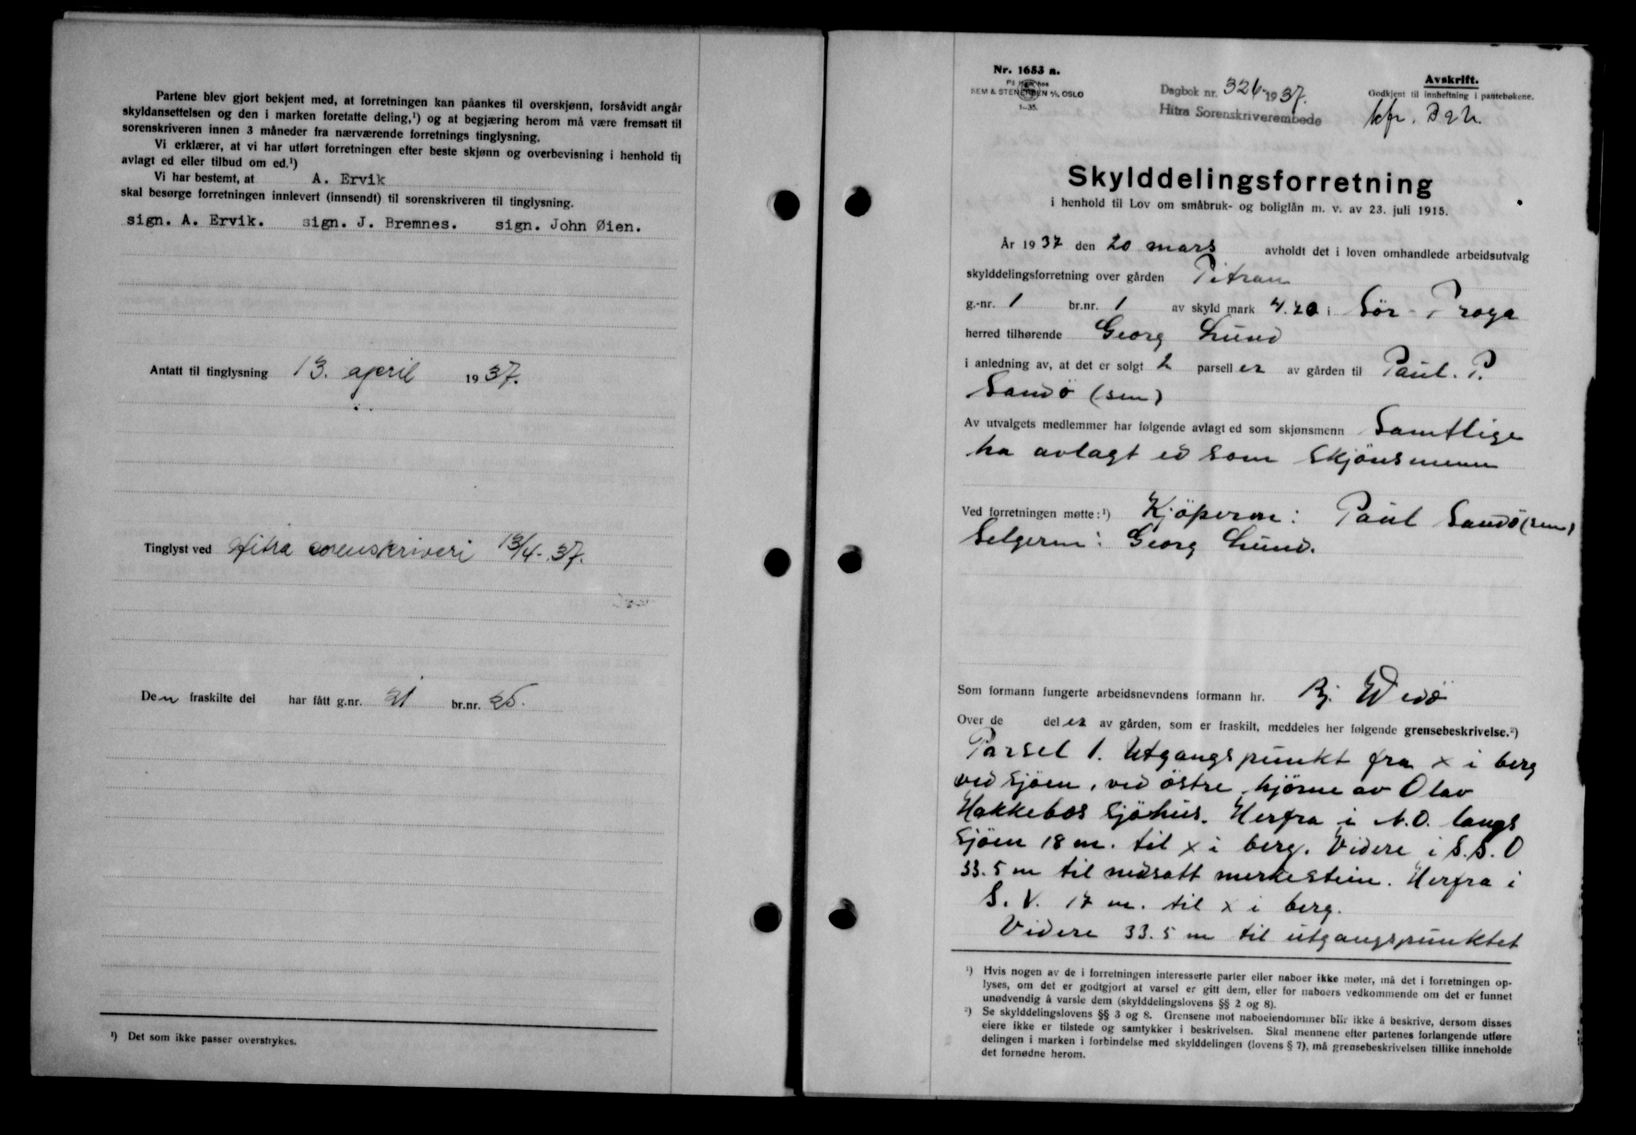 Partene blev gjort bekjent med, at forretningen kan påankes til overskjønn, forsåvidt angår
skyldansettelsen og den i marken foretatte deling,¹) og at begjæring herom må være fremsatt til
sorenskriveren innen 3 måneder fra nærværende forretnings tinglysning.
Vi erklærer, at vi har utført forretningen efter beste skjønn og overbevisning i henhold til
avlagt ed eller tilbud om ed.¹)
Vi har bestemt, at A. Ervik
skal besørge forretningen innlevert (innsendt) til sorenskriveren til tinglysning.
sign. A. Ervik. sign. J. Bremnes. sign. John Øien.
Antatt til tinglysning 13. april 1937.
Tinglyst ved Hitra sorenskriveri 13/4-37.
Den fraskilte del har fått g.nr. 21 br.nr. 25.
¹) Det som ikke passer overstrykes.
Nr. 1653 a.
SEM & STENERSEN A/S, OSLO
1-35.
Dagbok nr. 326 1937.
Hitra Sorenskriverembede
Avskrift.
Godkjent til innheftning i pantebøkene.
Skylddelingsforretning
i henhold til Lov om småbruk- og boliglån m. v. av 23. juli 1915.
År 1937 den 20 mars avholdt det i loven omhandlede arbeidsutvalg
skylddelingsforretning over gården Titran
g.-nr. 1 br.nr. 1 av skyld mark 4.20 i Sör-Fröya
herred tilhørende Georg Lund
i anledning av, at det er solgt 2 parseller av gården til Paul. P.
Sandö (sen)
Av utvalgets medlemmer har følgende avlagt ed som skjønsmenn Samtlige
ha avlagt ed som skjönsmenn
Ved forretningen møtte:¹) Kjöperen: Paul Sandö (sen)
Selgeren: Georg Lund.
Som formann fungerte arbeidsnevndens formann hr. Bj. Wedö
Over de deler av gården, som er fraskilt, meddeles her følgende grensebeskrivelse.²)
Parsel 1. Utgangspunkt fra x i berg
ved sjöen, ved östre hjörne av Olav
Hakkebos sjöhus. Herfra i N.O. langs
sjöen 18 m. til x i berg. Videre i S.S.O
33.5 m til nedsatt merkestein. Herfra i
S.V. 17 m. til x i berg.
Videre 33.5 m til utgangspunktet
¹) Hvis nogen av de i forretningen interesserte parter eller naboer ikke møter, må det i forretningen op-
lyses, om det er godtgjort at varsel er gitt dem, eller for naboers vedkommende om det er funnet
unødvendig å varsle dem (skylddelingslovens §§ 2 og 8).
²) Se skylddelingslovens §§ 3 og 8. Grensene mot naboeiendommer blir ikke å beskrive, dersom disses
eiere ikke er tilstede og samtykker i beskrivelsen. Skal mennene efter partenes forlangende utføre
delingen i marken i forbindelse med skylddelingen (lovens § 7), må grensebeskrivelsen tillike inneholde
det fornødne herom.